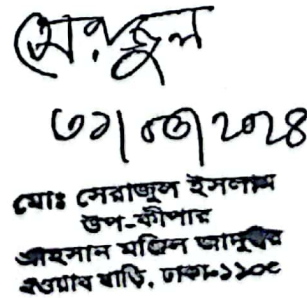 সেরাজুল
৩০/০৬/২০২৪
মোঃ সেরাজুল ইসলাম
উপ-কীপার
আহসান মঞ্জিল জাদুঘর
নওয়াব বাড়ি, ঢাকা-১১০০